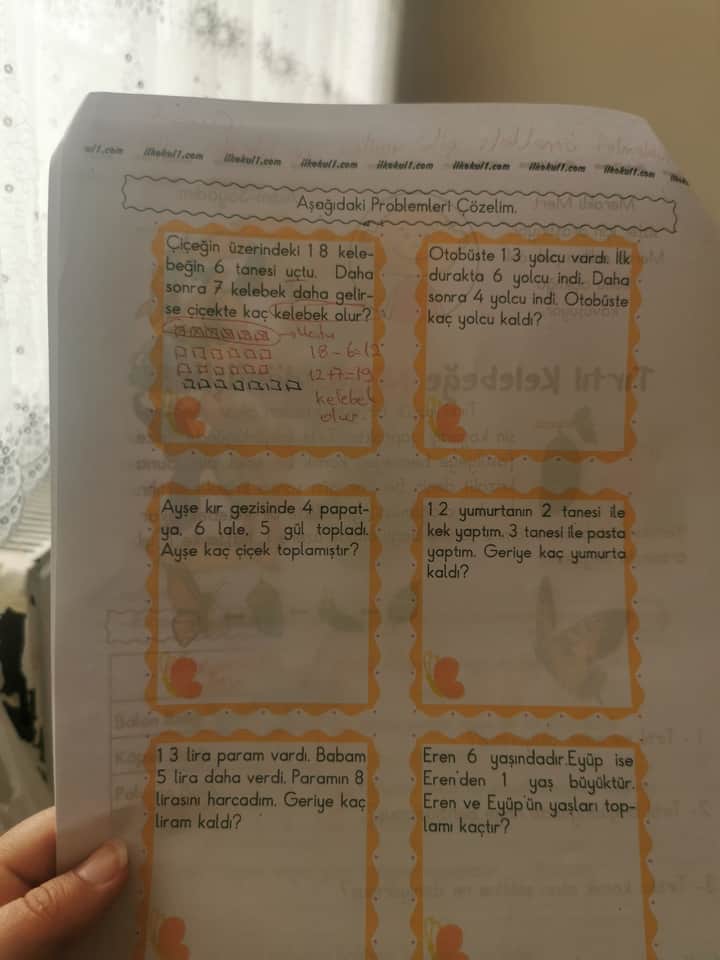 ilkokul1.com ilkokul1.com ilkokul1.com ilkokul1.com ilkokul1.com ilkokul1.com ilkokul1.com
Aşağıdaki Problemleri Çözelim.
Çiçeğin üzerindeki 18 kele-
beğin 6 tanesi uçtu. Daha
sonra 7 kelebek daha gelir-
se çiçekte kaç kelebek olur?
18-6=12
12+7=19
kelebek
olur.
Otobüste 13 yolcu vardı. İlk
durakta 6 yolcu indi. Daha
sonra 4 yolcu indi. Otobüste
kaç yolcu kaldı?
Ayşe kır gezisinde 4 papat-
ya, 6 lale, 5 gül topladı.
Ayşe kaç çiçek toplamıştır?
12 yumurtanın 2 tanesi ile
kek yaptım. 3 tanesi ile pasta
yaptım. Geriye kaç yumurta
kaldı?
13 lira param vardı. Babam
5 lira daha verdi. Paramın 8
lirasını harcadım. Geriye kaç
liram kaldı?
Eren 6 yaşındadır.Eyüp ise
Eren'den 1 yaş büyüktür.
Eren ve Eyüp'ün yaşları top-
lamı kaçtır?